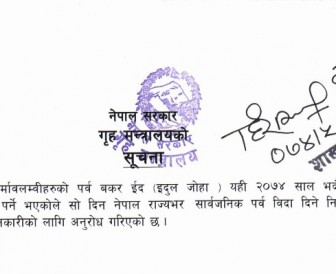 नेपाल सरकार
गृह मन्त्रालयको
सूचना
र्मावलम्वीहरुको पर्व बकर ईद (इदुल जोहा ) यही २०७४ साल भदौ
पर्ने भएकोले सो दिन नेपाल राज्यभर सार्वजनिक पर्व विदा दिने नि
नकारीको लागि अनुरोध गरिएको छ ।